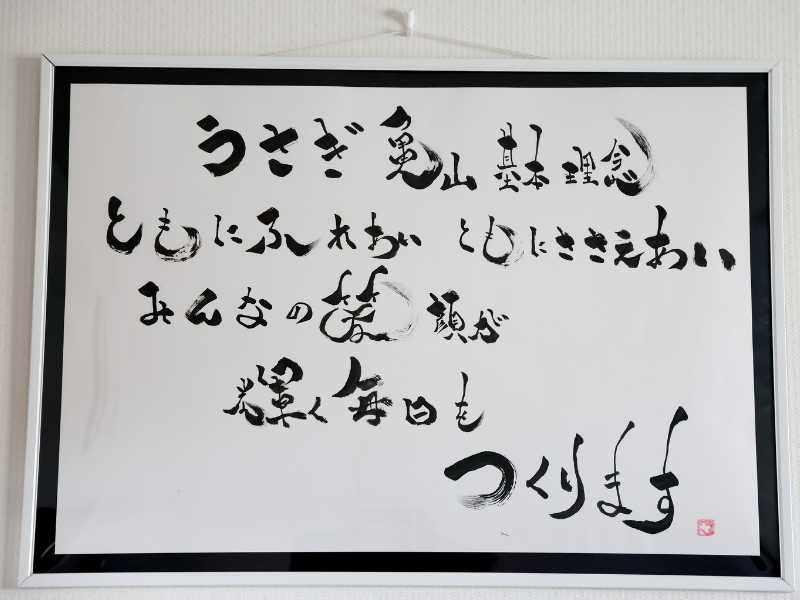 うさぎ亀山 基本理念
ともにふれあい ともにささえあい
みんなの笑顔が
輝く毎日も
つくります